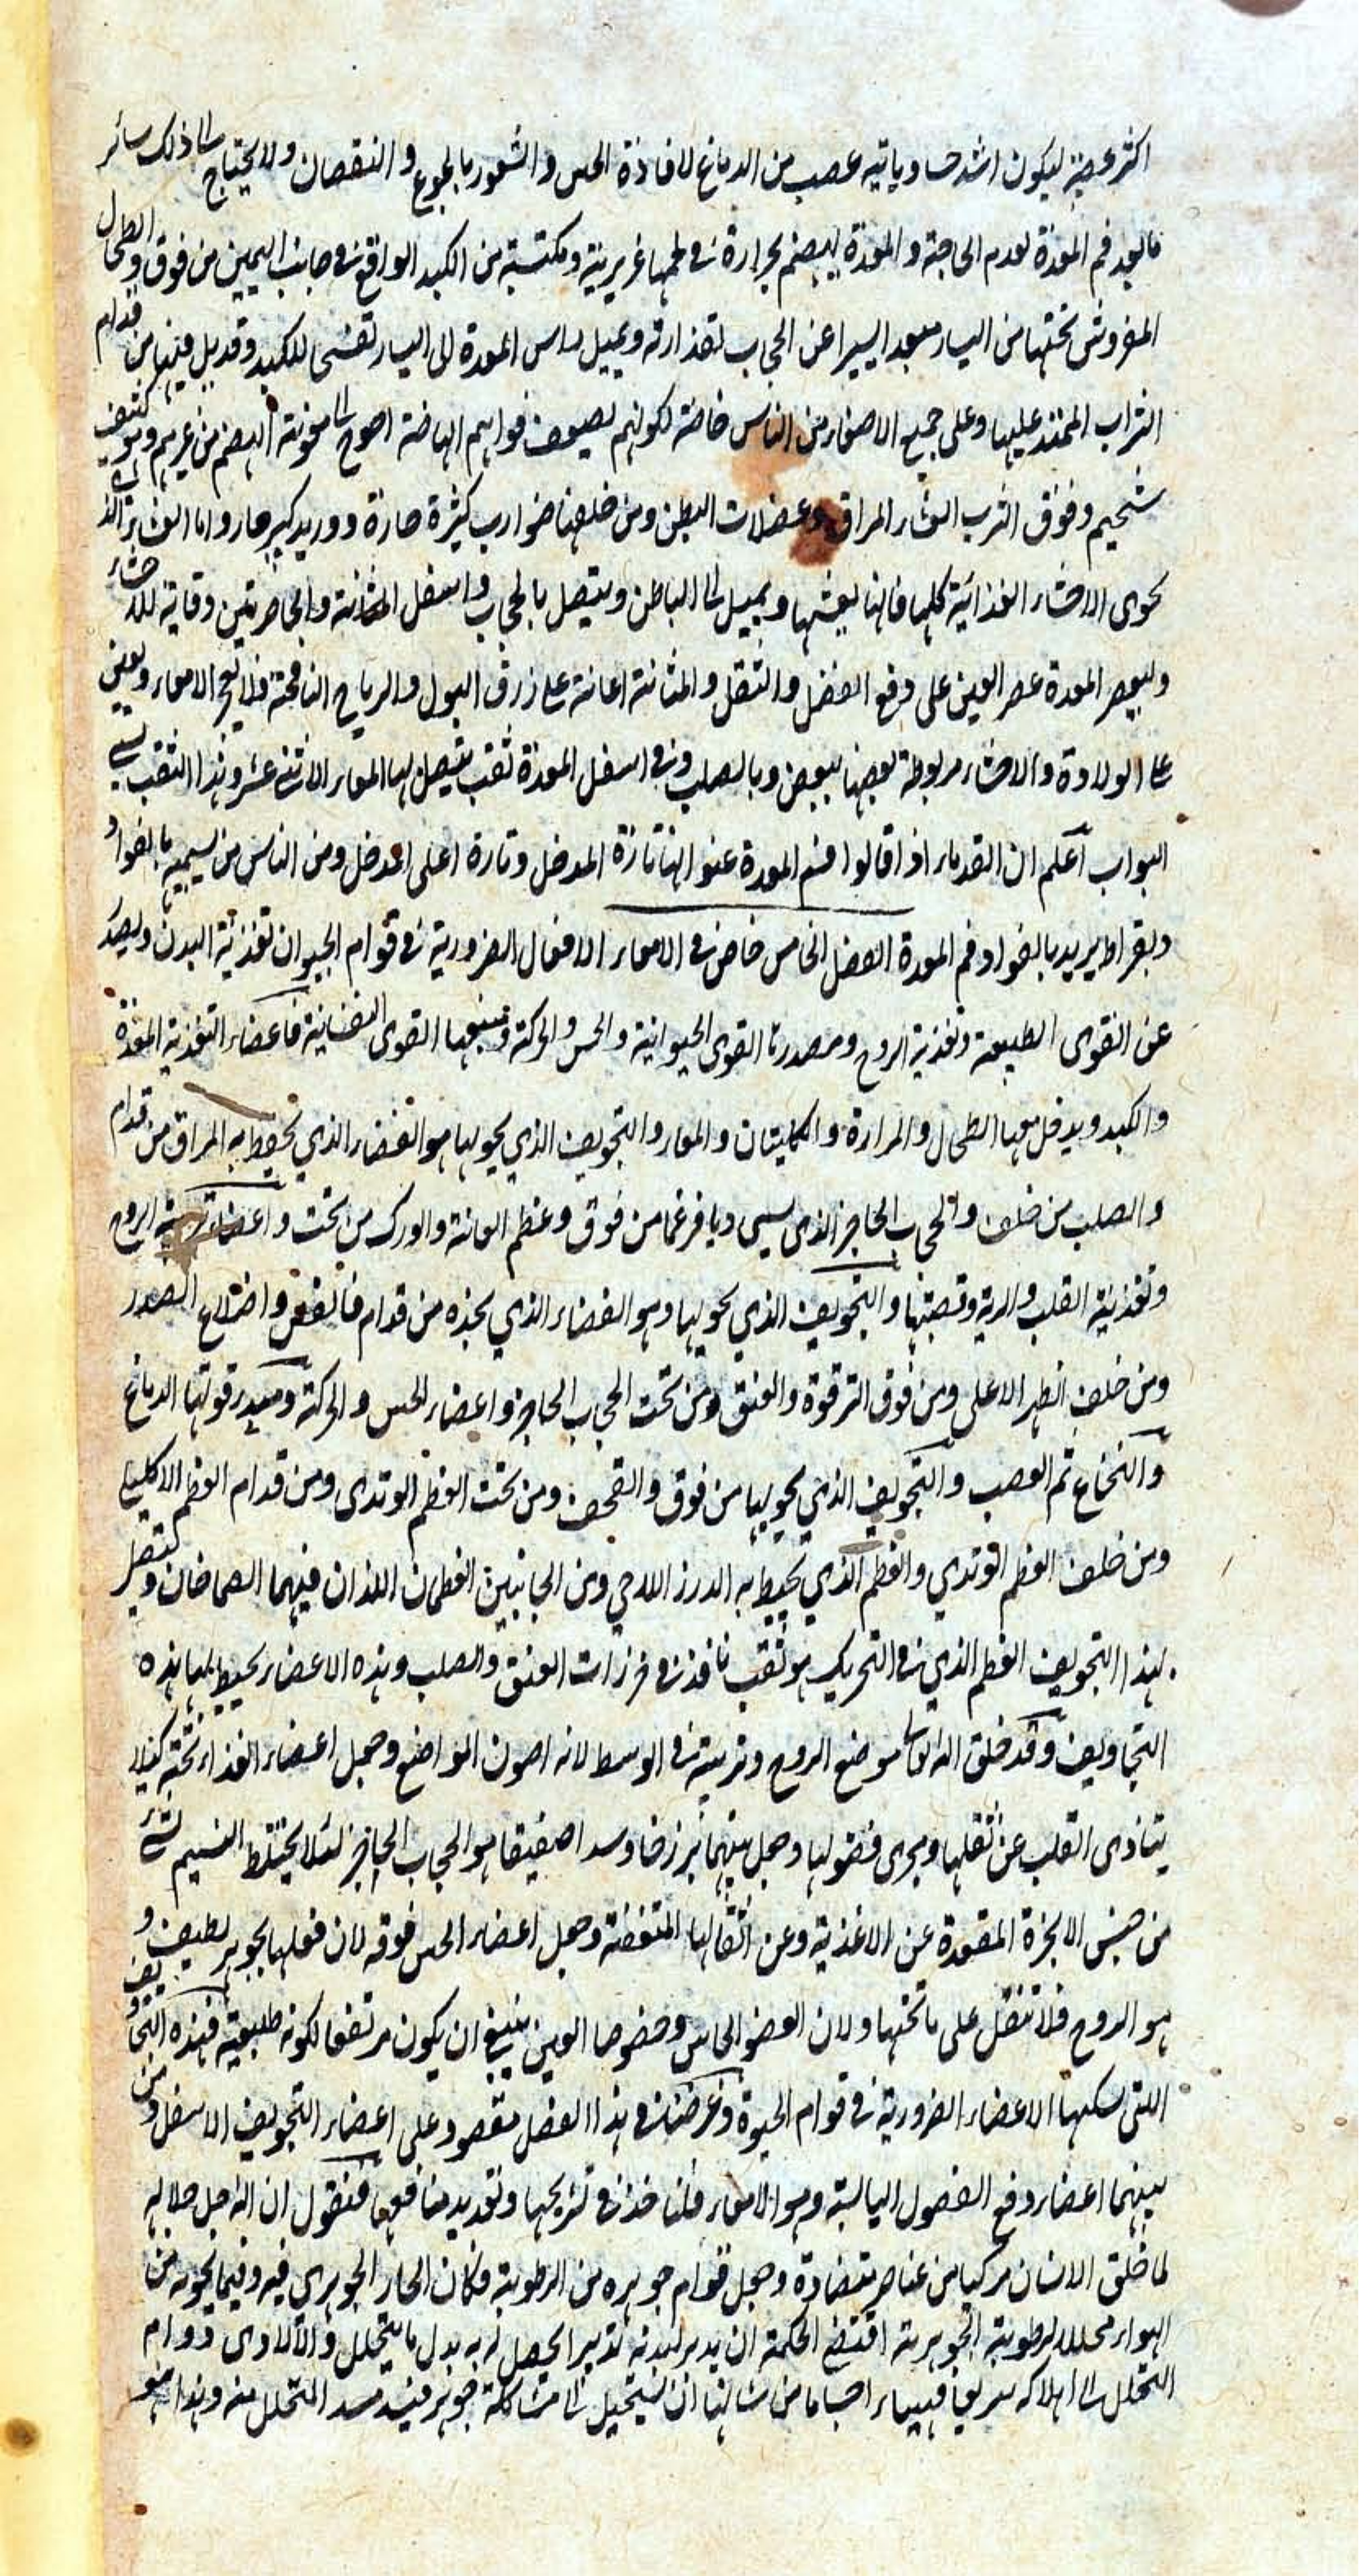 اكثر عصبية ليكون اشد حسا وياتيه عصب من الدماغ لافادة الحس والشعور بالجوع والنقصان ولا يحتاج الى ذلك سائر
ما بعد فم المعدة لعدم الحاجة والمعدة يهضم بحرارة فى لحمها غريزية ومكتسبة من الكبد الواقع فى جانب اليمين من فوق والطحال
المفروش تحتها من اليسار مبعد ايسيرا عن الحجاب لقذارته ويميل راس المعدة الى اليسار تفسحا للكبد وقد من قدام
الثراب الممتد عليها وعلى جميع الاحشاء من الناس خاصة لكونهم لضعف قواهم الهاضمة احوج الى معونة الهضم من غيرهم وهو كثيف
شحيم وفوق الثرب الغشاء المراق وعضلات البطن ومن خلفها ضوارب كثيرة حارة ووريد كبير حار واما الغشاء الذى
يحوى الاحشاء الغذائية كلها فانها يغشها ويميل الى الباطن ويتصل بالحجاب واسفل المثانة والخاصرتين وقاية للاحشاء
وليعصر المعدة عصر العين على دفع الفضل والثفل والمثانة اعانة على زرق البول والرياح النافخة فلا الامعاء ويعين
على الولادة والاحشاء مربوطة بعضها ببعض وبالصلب وفى اسفل المعدة ثقب يتصل بها المعاء الاثنى عشر وهذا الثقب يسمى
البواب اعلم ان القدماء اذا قالوا فم المعدة عنوا بها تارة المدخل وتارة اعلى المدخل ومن الناس من يسميه بالفواد
وبقراط يريد بالفواد فم المعدة الفصل الخامس خاص فى الامعاء الافعال الضرورية فى قوام الحيوان تغذية البدن ويصدر
عن القوى الطبيعة وتغذية الروح ومصدرها القوى الحيوانية والحس والحركة ومنبعها القوى النفسانية فاعضاء التغذية المعدة
والكبد ويدخل معها الطحال والمرارة والكليتان والمعاء والتجويف الذي يحويها هو الفضاء الذي يحيط به المراق من قدام
والصلب من خلف والحجاب الحاجز الذى يسمى ديافرغما من فوق وعظم العانة والورك من تحت واعضاء تربية الروح
وتغذيته القلب والرية وقصبتها والتجويف الذي يحويها وهو الفضاء الذي يحده من قدام فالقص واضلاع الصدر
ومن خلف الظهر الاعلى ومن فوق الترقوة والعنق ومن تحت الحجاب الحاجز واعضاء الحس والحركة ومصدر قوتها الدماغ
والنخاع ثم العصب والتجويف الذي يحويها من فوق والقحف ومن تحت العظم الوتدى ومن قدام العظم الاكليلى
ومن خلف العظم الوتدي والعظم الذي يحيط به الدرز اللامي ومن الجانبين العظمان اللذان فيهما الصماخان ويتصل
بهذا التجويف العظم الذي فى التحريك هو ثقب نافذ فى خرزات العنق والصلب وهذه الاعضاء يحيط بها هذه
التجاويف وقد خلق الله تعالى موضع الروح وتربيته فى الوسط لانه اصون المواضع وجعل اعضاء الغذاء تحته كيلا
يتاذى القلب عن ثقلها ومجرى فضولها وجعل بينهما برزخا وسدا صفيقا هو الحجاب الحاجز لئلا يختلط النسيم بشئ
من جنس الابخرة المتصعدة عن الاغذية وعن اثقالها المتعفنة وجعل اعضاء الحس فوقه لان فعلها بجوهر لطيف و
هو الروح فلا تثقل على ما تحتها ولان العضو الحاس وخصوصا العين ينبغى ان يكون مرتفعا لكونه طليعة فهذه التجاويف
اللتى تسكنها الاعضاء الضرورية فى قوام الحيوة وغرضنا فى هذا الفصل مقصود على اعضاء التجويف الاسفل ومن
بينهما اعضاء دفع الفضول اليابسة وهو الامعاء فلناخذ فى تشريحها وتعديد منافعها فنقول ان الله جل جلاله
لما خلق الانسان مركبا من عناصر متضادة وجعل قوام جوهره من الرطوبة وكان الحار الجوهري فيه وفيما يحويه من
الهواء محللا لرطوبته الجوهرية اقتضى الحكمة ان يدبر لبدنه تدبيرا يحصل له به بدل ما يتحلل والا لادى دوام
التحلل الى اهلاكه سريعا فهيياء اجساما من شانها ان يستحيل الى مشاكلة جوهر فيسد مسد المتحلل منه وهذا هو